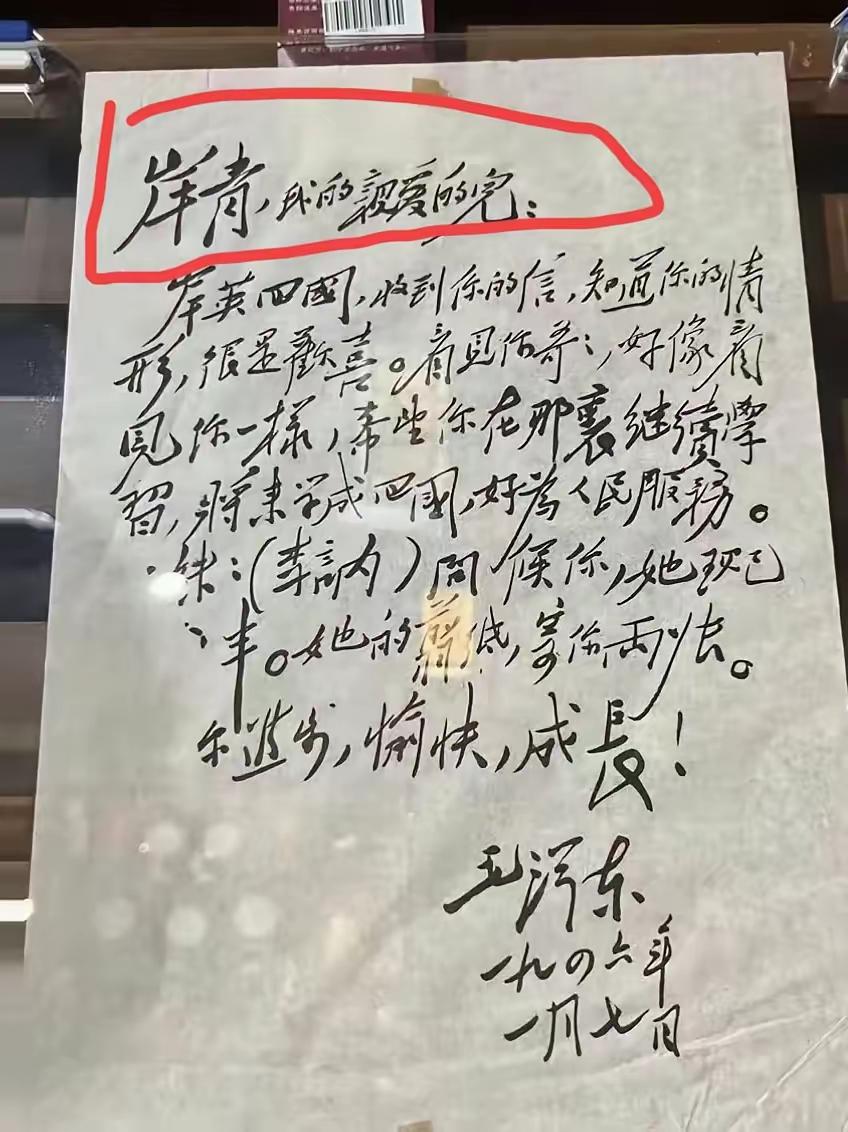 岸青,我的親愛的兒:
岸英回國,收到你的信,知道你的情
形,很是歡喜。看見你哥:,好像看
見你一樣,希望你在那裏继續學
習,將來學成回國,好為人民服務。
妹:(李訥)問候你,她現已
五岁半。她的剪纸,寄你兩张。
你進步,愉快,成長!
毛澤东
一九四六年
一月七日